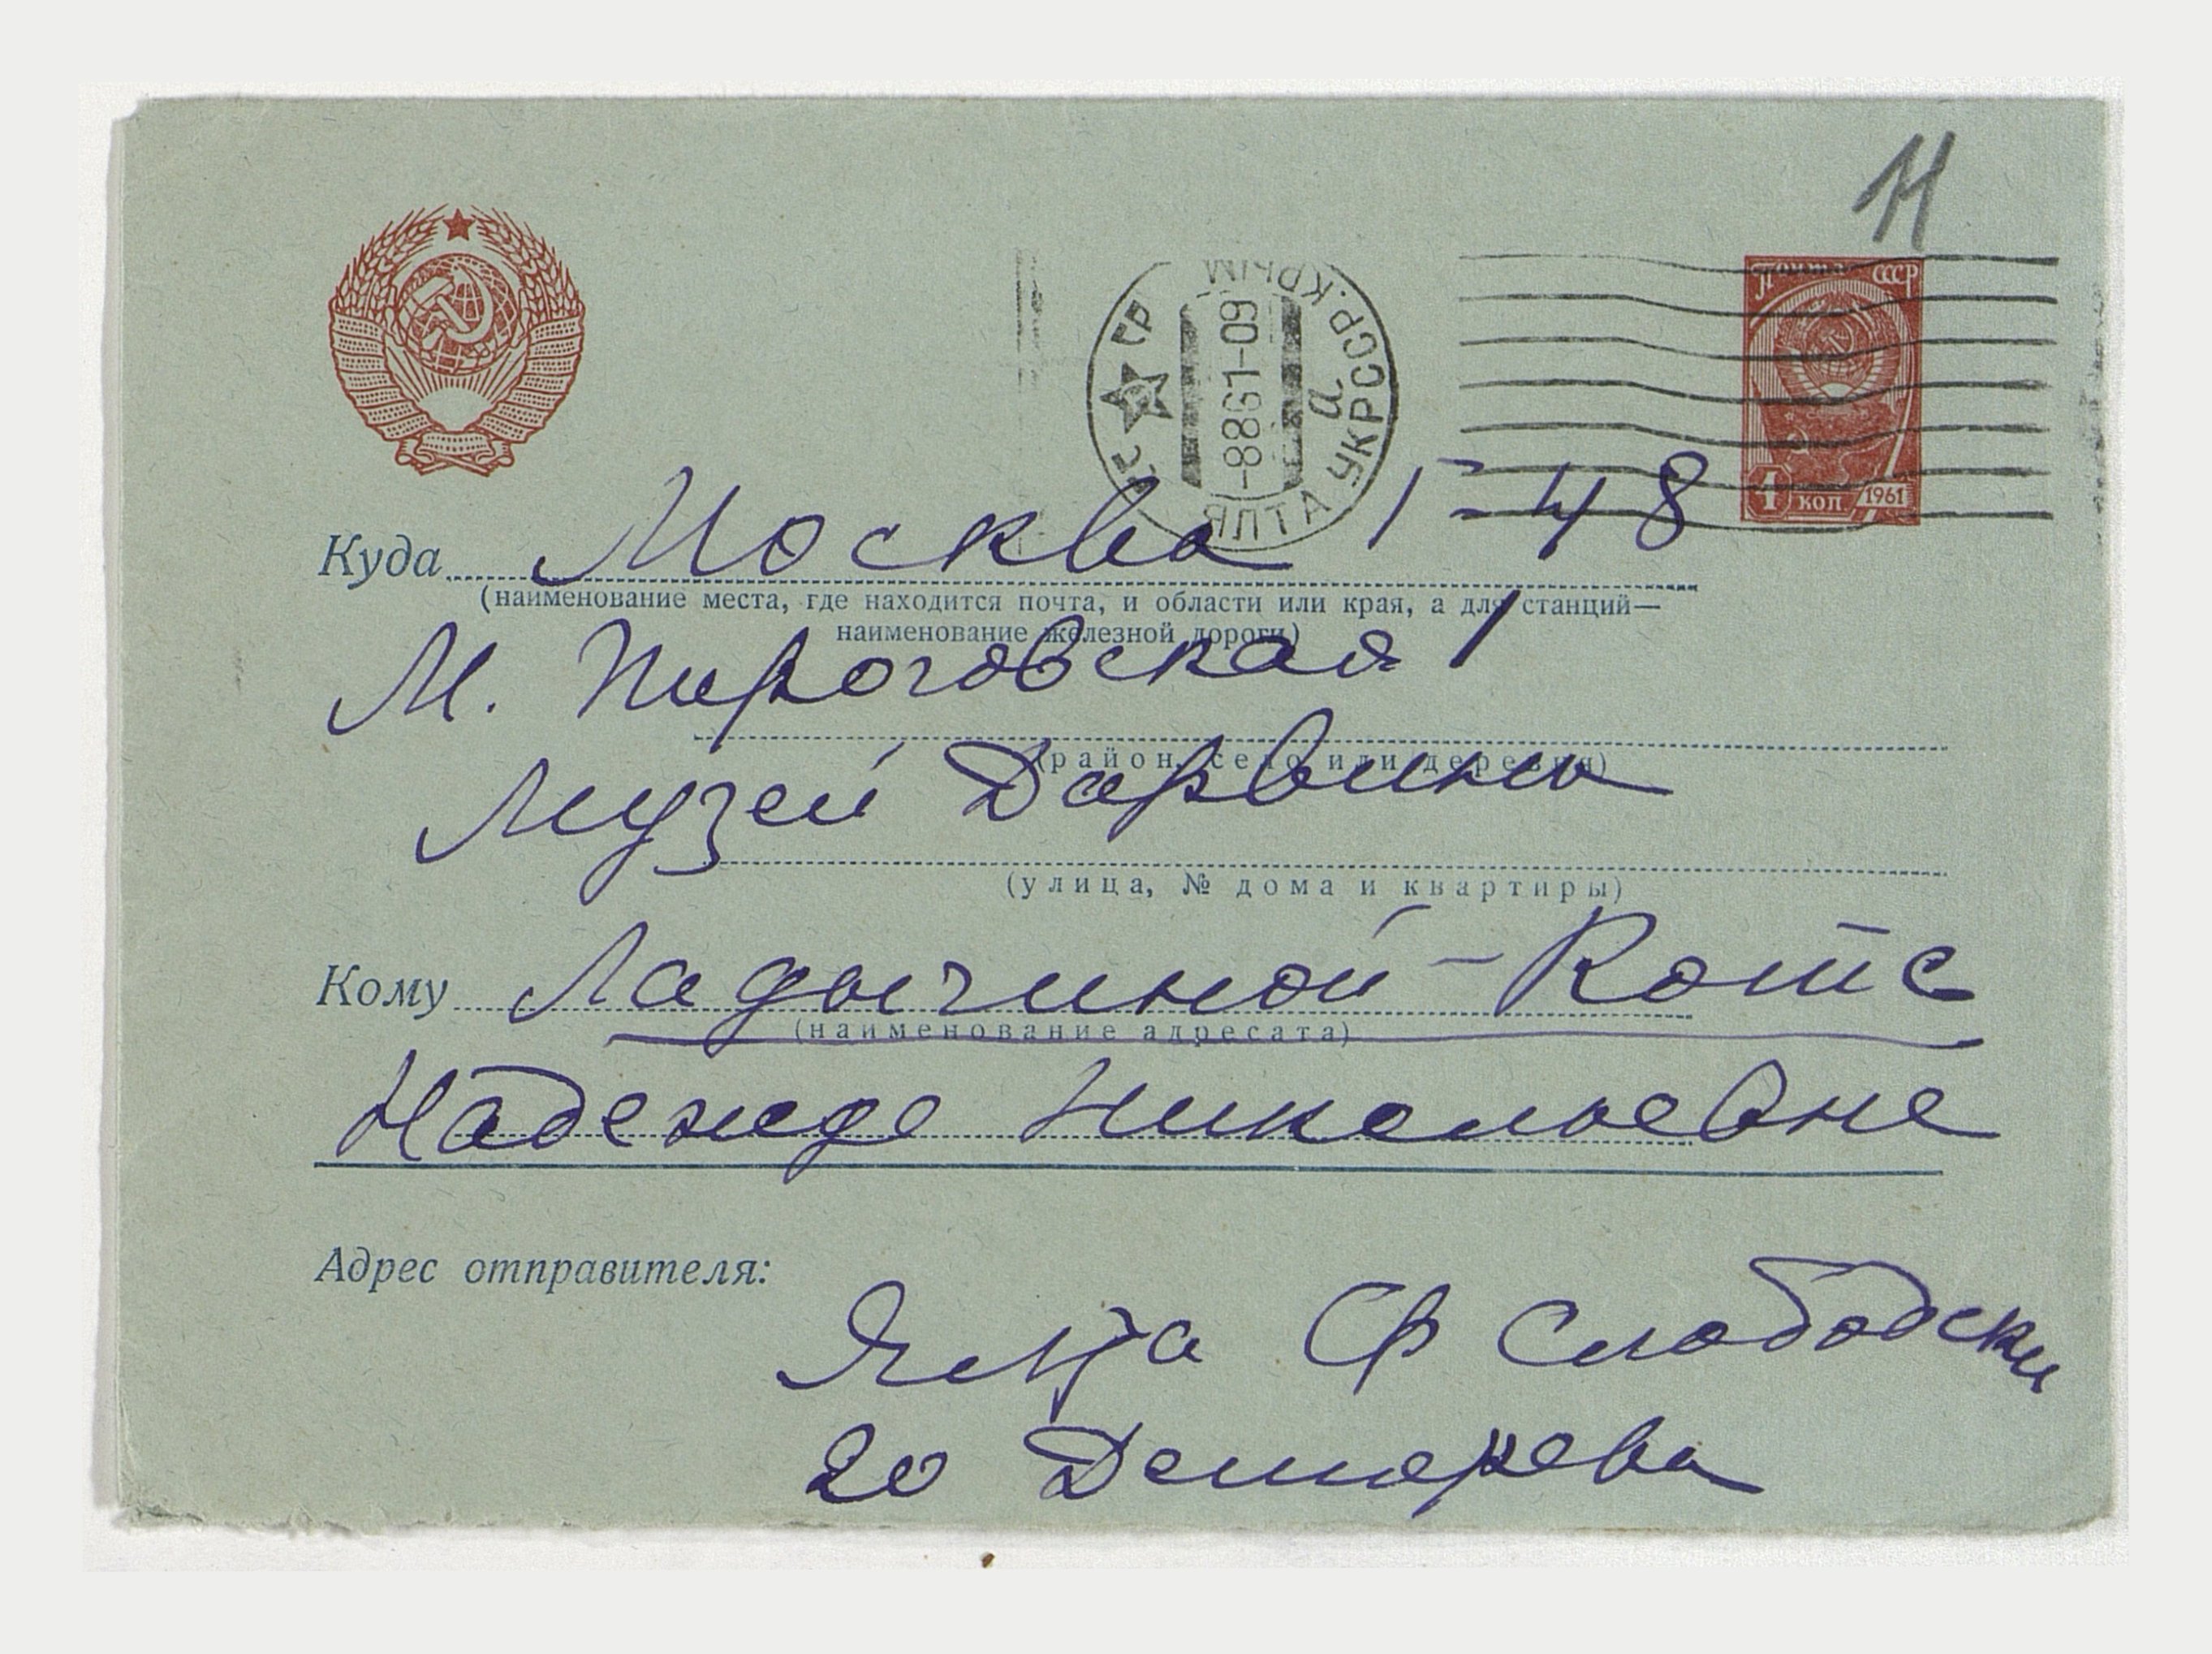 11
Почта СССР
1 коп 1961
ЯЛТА УКРССР. КРЫМ
-8861-09
а
Куда Москва Г-48
(наименование места, где находится почта, и области или края, а для станций—
наименование железной дороги)
М. Пироговская 1
(район, село или деревня)
Музей Дарвина
(улица, № дома и квартиры)
Кому Ладыгиной-Котс
(наименование адресата)
Надежде Николаевне
Адрес отправителя:
Ялта Ф Слободски
20 Дешарева